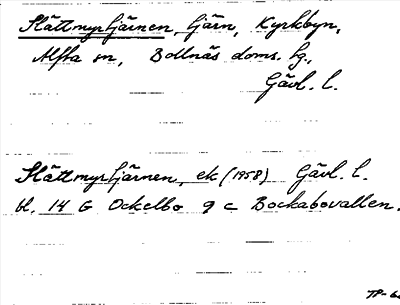 Slättmyrtjärnen, tjärn, Kyrkbyn,
Alfta sn, Bollnäs doms. hg.,
Gävl. l.
Slättmyrtjärnen, ek (1958) Gävl. l.
bl. 14 G Ockelbo 9 c Bockabovallen.